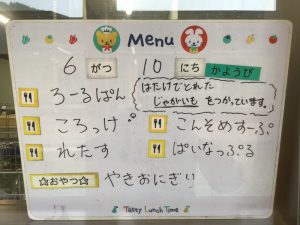 Menu
6 がつ 10 にち かようび
はたけでとれた
じゃがいも をつかっています。
ろーるぱん
ころっけ
こんそめすーぷ
れたす
ぱいなっぷる
☆おやつ☆ やきおにぎり
Tasty Lunch Time